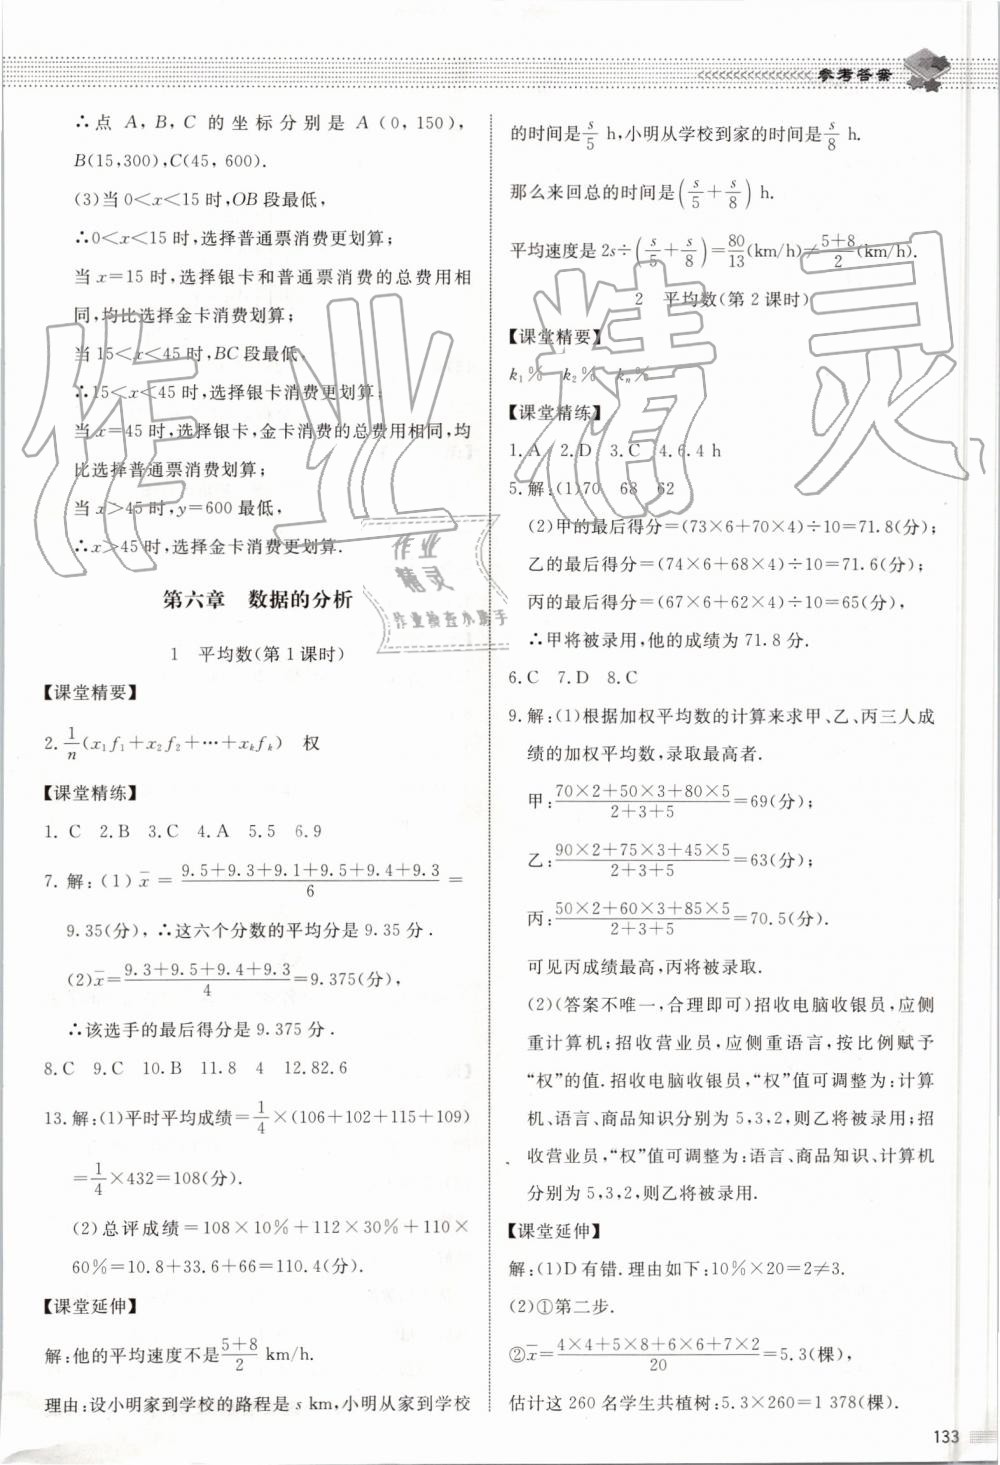 参考答案
∴点 A, B, C 的坐标分别是 A(0, 150),
B(15,300),C(45, 600).
(3)当 0<x<15 时,OB 段最低,
∴0<x<15 时,选择普通票消费更划算;
当 x=15 时,选择银卡和普通票消费的总费用相
同,均比选择金卡消费划算;
当 15<x<45 时,BC 段最低,
∴15<x<45 时,选择银卡消费更划算;
当 x=45 时,选择银卡,金卡消费的总费用相同,均
比选择普通票消费划算;
当 x>45 时,y=600 最低,
∴x>45 时,选择金卡消费更划算.
第六章 数据的分析
1 平均数(第1课时)
【课堂精要】
2. \frac{1}{n}(x₁f₁+x₂f₂+…+xₖfₖ) 权
【课堂精练】
1. C 2.B 3.C 4.A 5.5 6.9
7. 解:(1) x̄ = \frac{9.5+9.3+9.1+9.5+9.4+9.3}{6} =
9.35(分), ∴这六个分数的平均分是 9.35 分.
(2)x̄=\frac{9.3+9.5+9.4+9.3}{4}=9.375(分),
∴该选手的最后得分是 9.375 分.
8.C 9.C 10.B 11.8 4 12.82.6
13.解:(1)平时平均成绩=\frac{1}{4}×(106+102+115+109)
=\frac{1}{4}×432=108(分).
(2)总评成绩=108×10%+112×30%+110×
60%=10.8+33.6+66=110.4(分).
【课堂延伸】
解:他的平均速度不是\frac{5+8}{2} km/h.
理由:设小明家到学校的路程是 s km,小明从家到学校
的时间是\frac{s}{5} h,小明从学校到家的时间是\frac{s}{8} h.
那么来回总的时间是(\frac{s}{5}+\frac{s}{8}) h.
平均速度是 2s÷(\frac{s}{5}+\frac{s}{8})=\frac{80}{13}(km/h)≠\frac{5+8}{2}(km/h).
2 平均数(第2课时)
【课堂精要】
k₁% k₂% kₙ%
【课堂精练】
1.A 2.D 3.C 4.6.4 h
5.解:(1)70 68 62
(2)甲的最后得分=(73×6+70×4)÷10=71.8(分);
乙的最后得分=(74×6+68×4)÷10=71.6(分);
丙的最后得分=(67×6+62×4)÷10=65(分),
∴甲将被录用,他的成绩为 71.8 分.
6.C 7.D 8.C
9.解:(1)根据加权平均数的计算来求甲、乙、丙三人成
绩的加权平均数,录取最高者.
甲:\frac{70×2+50×3+80×5}{2+3+5}=69(分);
乙:\frac{90×2+75×3+45×5}{2+3+5}=63(分);
丙:\frac{50×2+60×3+85×5}{2+3+5}=70.5(分).
可见丙成绩最高,丙将被录取.
(2)(答案不唯一,合理即可)招收电脑收银员,应侧
重计算机;招收营业员,应侧重语言,按比例赋予
“权”的值.招收电脑收银员,“权”值可调整为:计算
机、语言、商品知识分别为 5,3,2,则乙将被录用;招
收营业员,“权”值可调整为:语言、商品知识、计算机
分别为 5,3,2,则乙将被录用.
【课堂延伸】
解:(1)D 有错.理由如下:10%×20=2≠3.
(2)①第二步.
②x̄=\frac{4×4+5×8+6×6+7×2}{20}=5.3(棵),
估计这 260 名学生共植树:5.3×260=1 378(棵).
133
作业精灵
作业
精灵
作业检查小助手